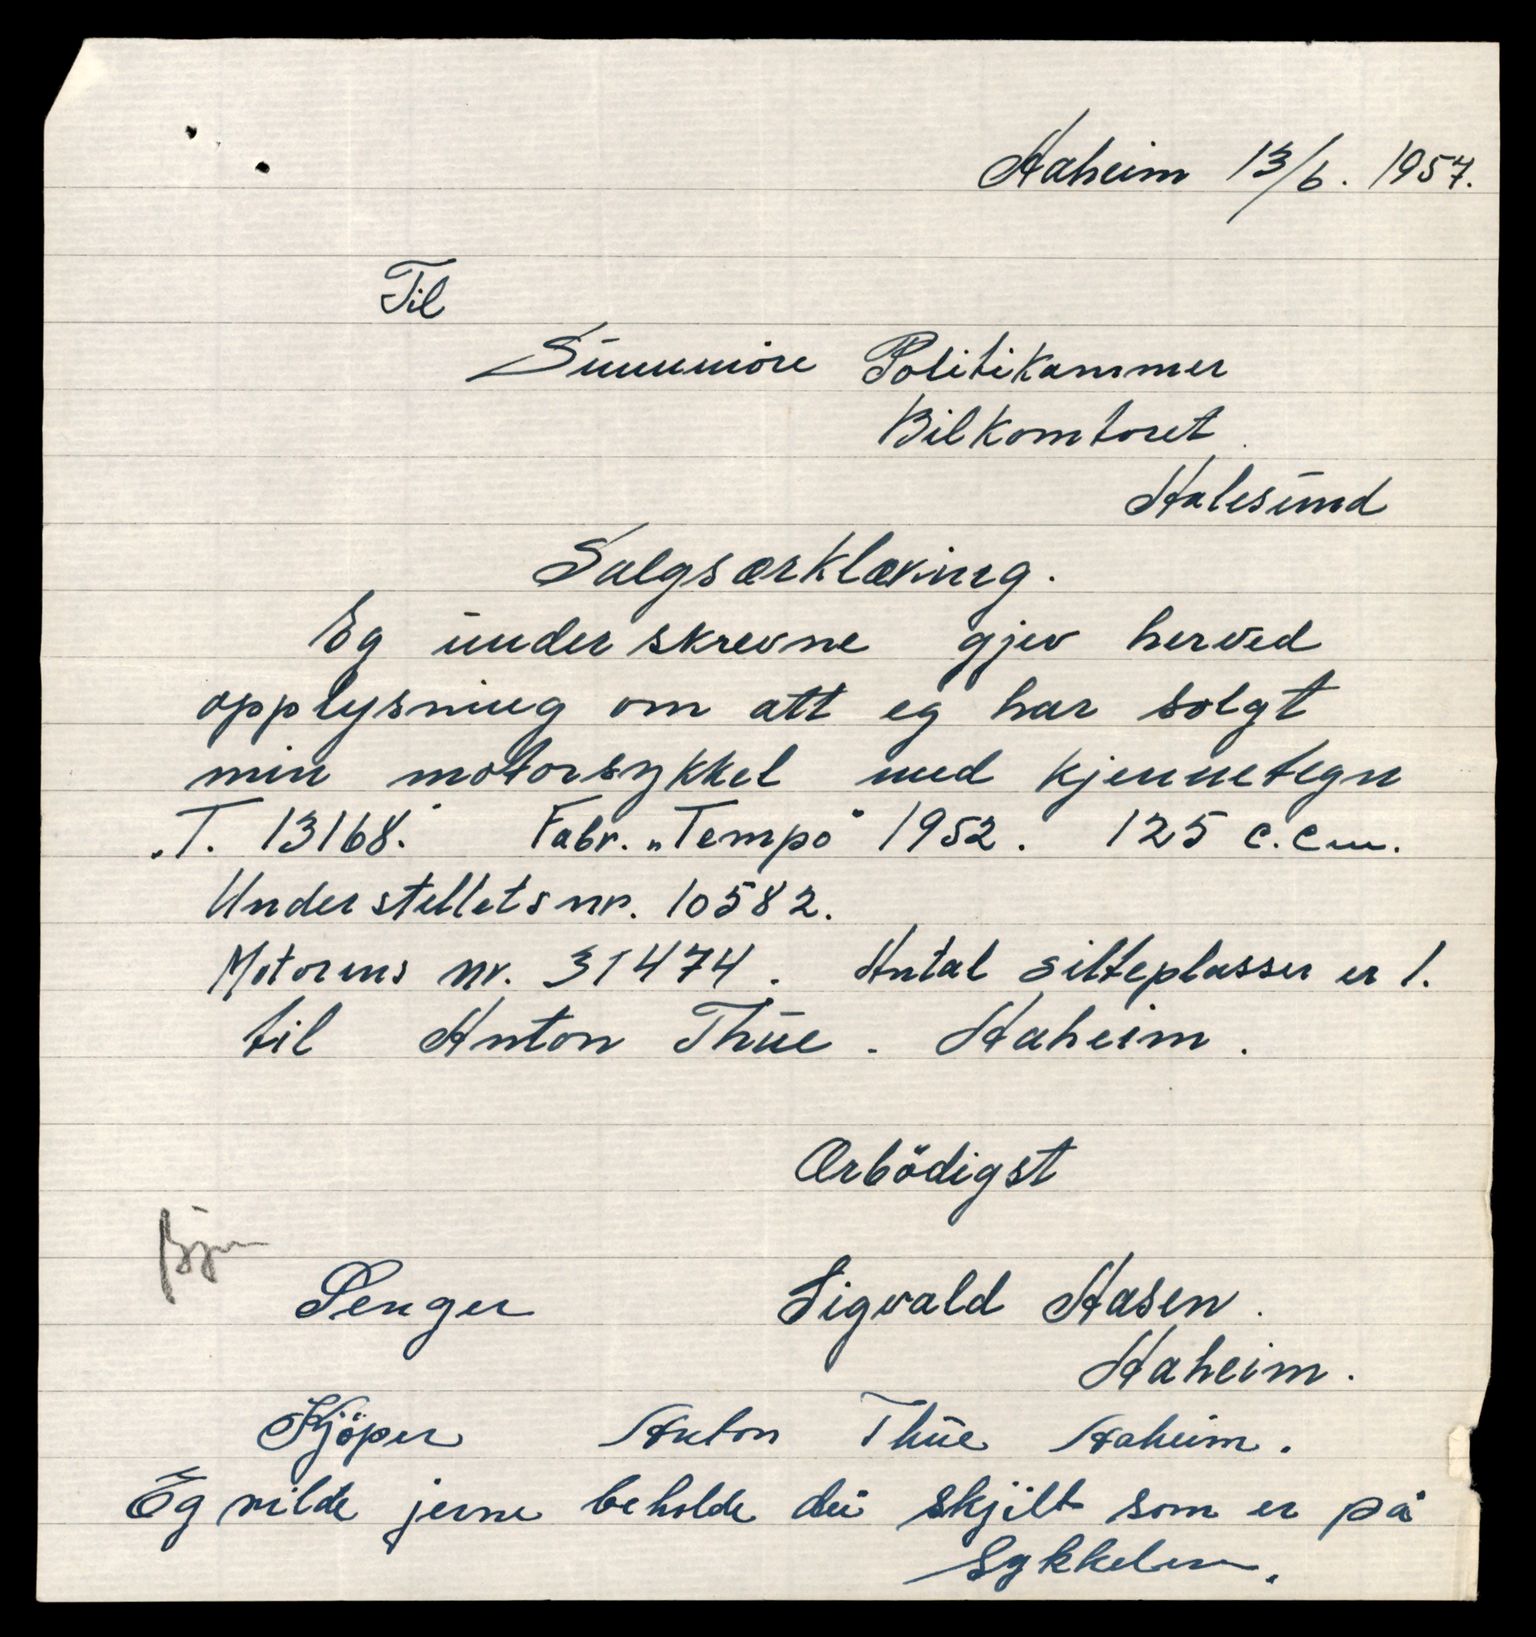 Aaheim 13/6. 1957.
Til
Sunnmöre Politikammer
Bilkontoret
Aalesund
Salgsærklæring.
Eg underskrevne gjev herved
opplysning om att eg har solgt
min motorsykkel med kjennetegn
„T. 13168.” Fabr. „Tempo” 1952. 125 c.cm.
Understellets nr. 10582.
Motorens nr. 31474. Antal sitteplasser er 1.
til Anton Thue. Aaheim.
Ærbödigst
Senger Sigvald Aasen.
Aaheim.
Kjöper Anton Thue Aaheim.
Eg vilde jerne beholde dei skjilt som er på
Sykkelen.